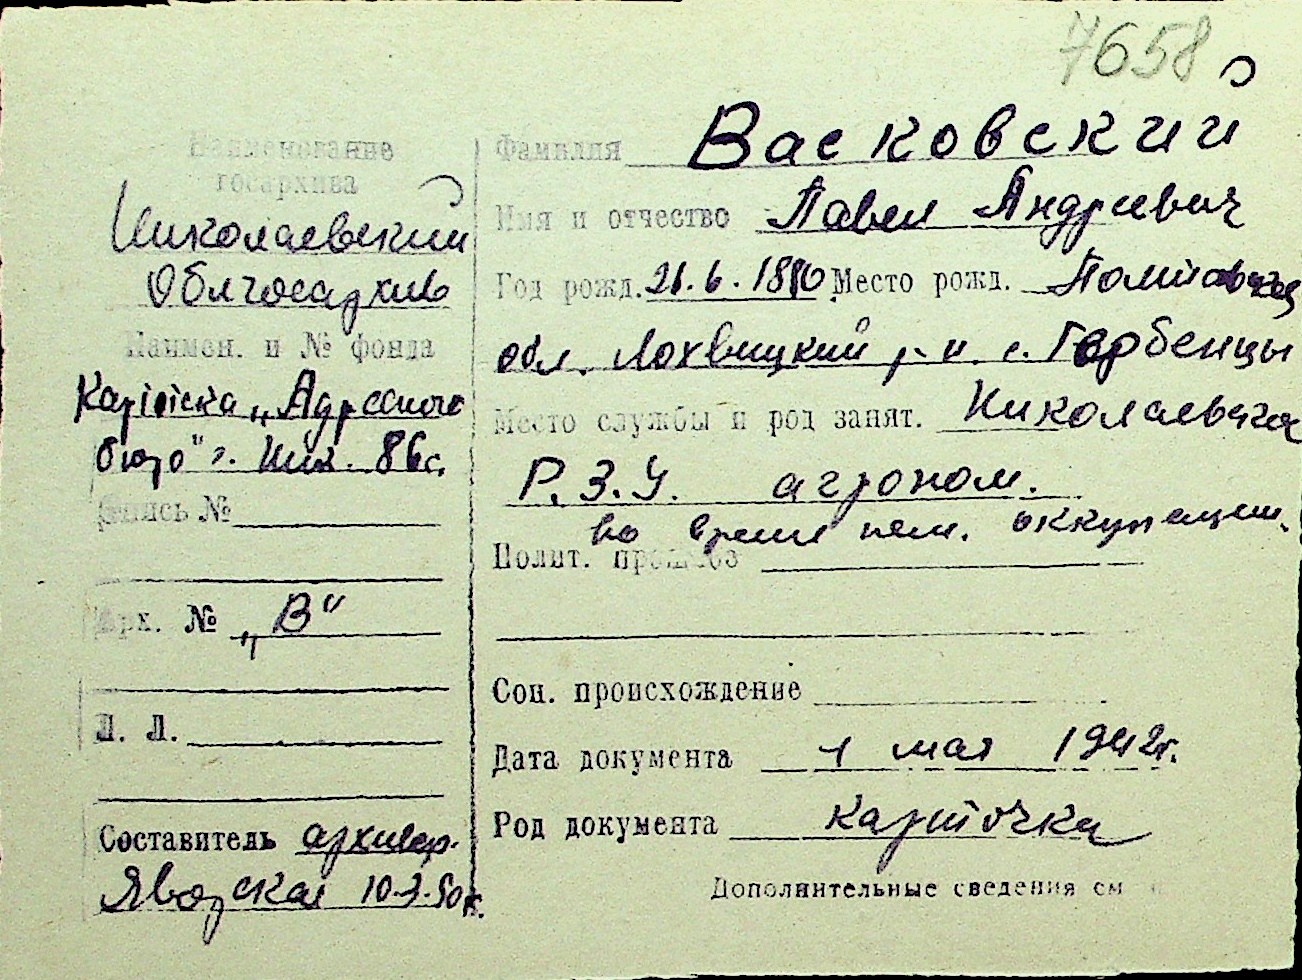 7658
Наименование
госархива
Николаевский
Облгосархив
Наимен. и № фонда
Картотека „Адресного
бюро" г. Ник. 86с.
Опись №
Арх. № „В"
Л. Л.
Составитель архивар.
Яворская 10.3.50г.
Фамилия Васковский
Имя и отчество Павел Андреевич
Год рожд. 21.6.1880 Место рожд. Полтавская
обл. Лохвицкий р-н. с. Гербенцы
Место службы и род занят. Николаевская
Р.З.У. агроном.
во время нем. оккупации.
Полит. прошлое
Соц. происхождение
Дата документа 1 мая 1942г.
Род документа карточка
Дополнительные сведения см